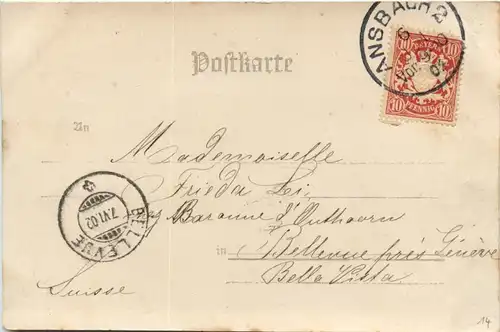 ANSBACH 2
BAYERN
10 10
PFENNIG
10 10
Postkarte
An
Mademoiselle
Frieda Lei,
Baronne d'Outhoorn
in Bellevue près Genève
Bella Vista
Suisse
BELLEVUE
7.XI.02
14